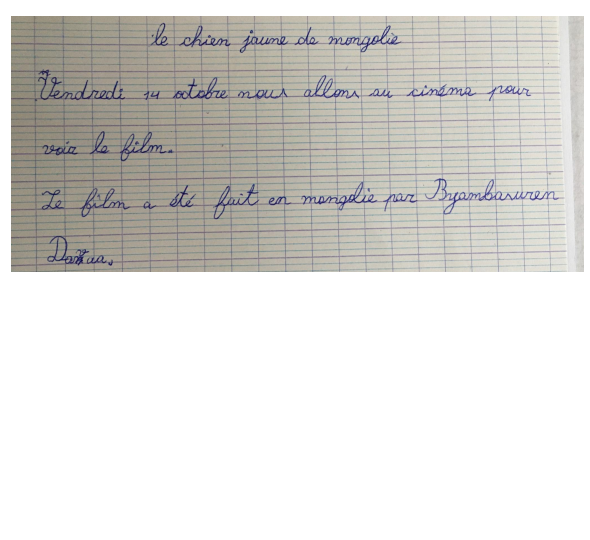 le chien jaune de mongolie
Vendredi 14 octobre nous allons au cinéma pour
voir le film.
Le film a été fait en mongolie par Byambasuren